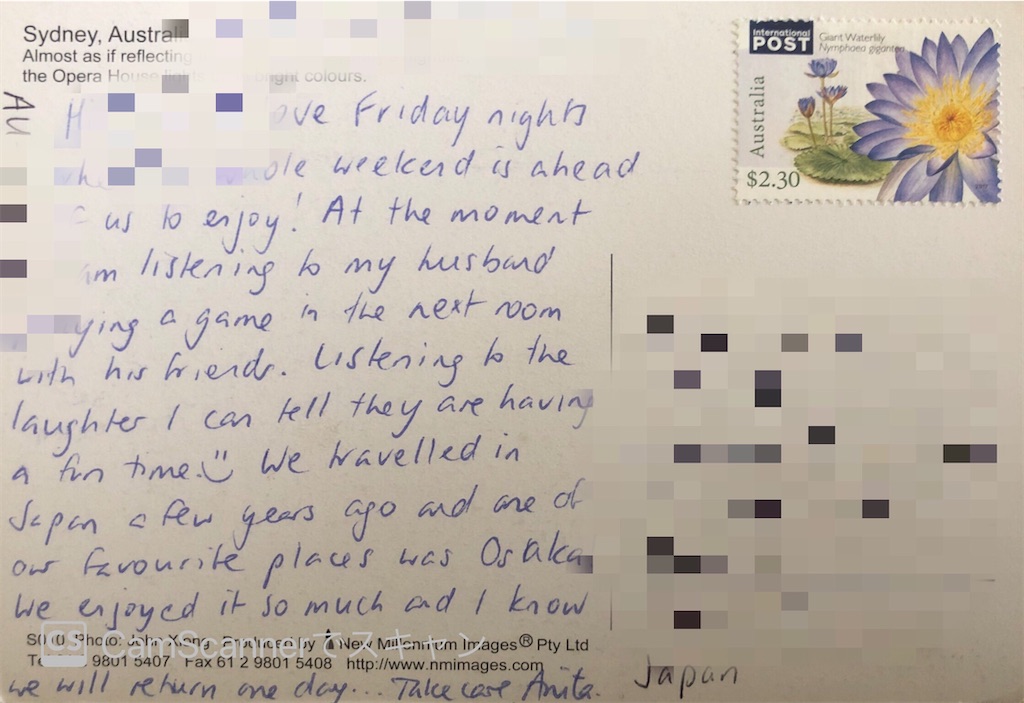 Sydney, Austral
Almost as if reflecting
the Opera House lights bright colours.
International
POST
Giant Waterlily
Nymphaea gigantea
Australia
$2.30
AU
H ove Friday nights
whole weekend is ahead
us to enjoy! At the moment
am listening to my husband
ying a game in the next room
with his friends. Listening to the
laughter I can tell they are having
a fun time. We travelled in
Japan a few years ago and one of
our favourite places was Osaka
We enjoyed it so much and I know
we will return one day... Take care Anita.
Photo: John Xiong Produced by New Millennium Images® Pty Ltd
9801 5407 Fax 61 2 9801 5408 http://www.nmimages.com
CS CamScannerでスキャン
Japan